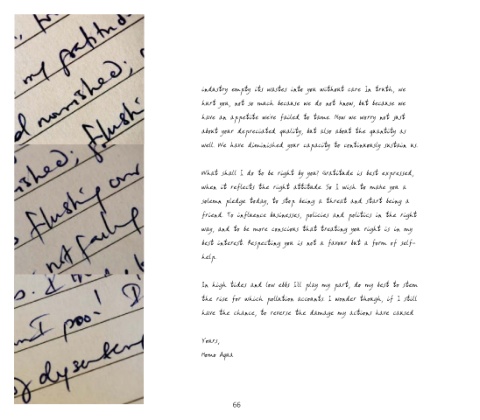 my gratitude
d nourished;
flushi
nished;
flushing our
not failing
I poo! I
dysentery
industry empty its wastes into you without care. In truth, we
hurt you, not so much because we do not know, but because we
have an appetite we've failed to tame. Now we worry not just
about your depreciated quality, but also about the quantity as
well. We have diminished your capacity to continuously sustain us.
What shall I do to be right by you? Gratitude is best expressed,
when it reflects the right attitude. So I wish to make you a
solemn pledge today, to stop being a threat and start being a
friend. To influence businesses, policies and politics in the right
way, and to be more conscious that treating you right is in my
best interest. Respecting you is not a favour but a form of self-
help.
In high tides and low ebbs I'll play my part, do my best to stem
the rise for which pollution accounts. I wonder though, if I still
have the chance, to reverse the damage my actions have caused.
Yours,
Homo Aqua
66